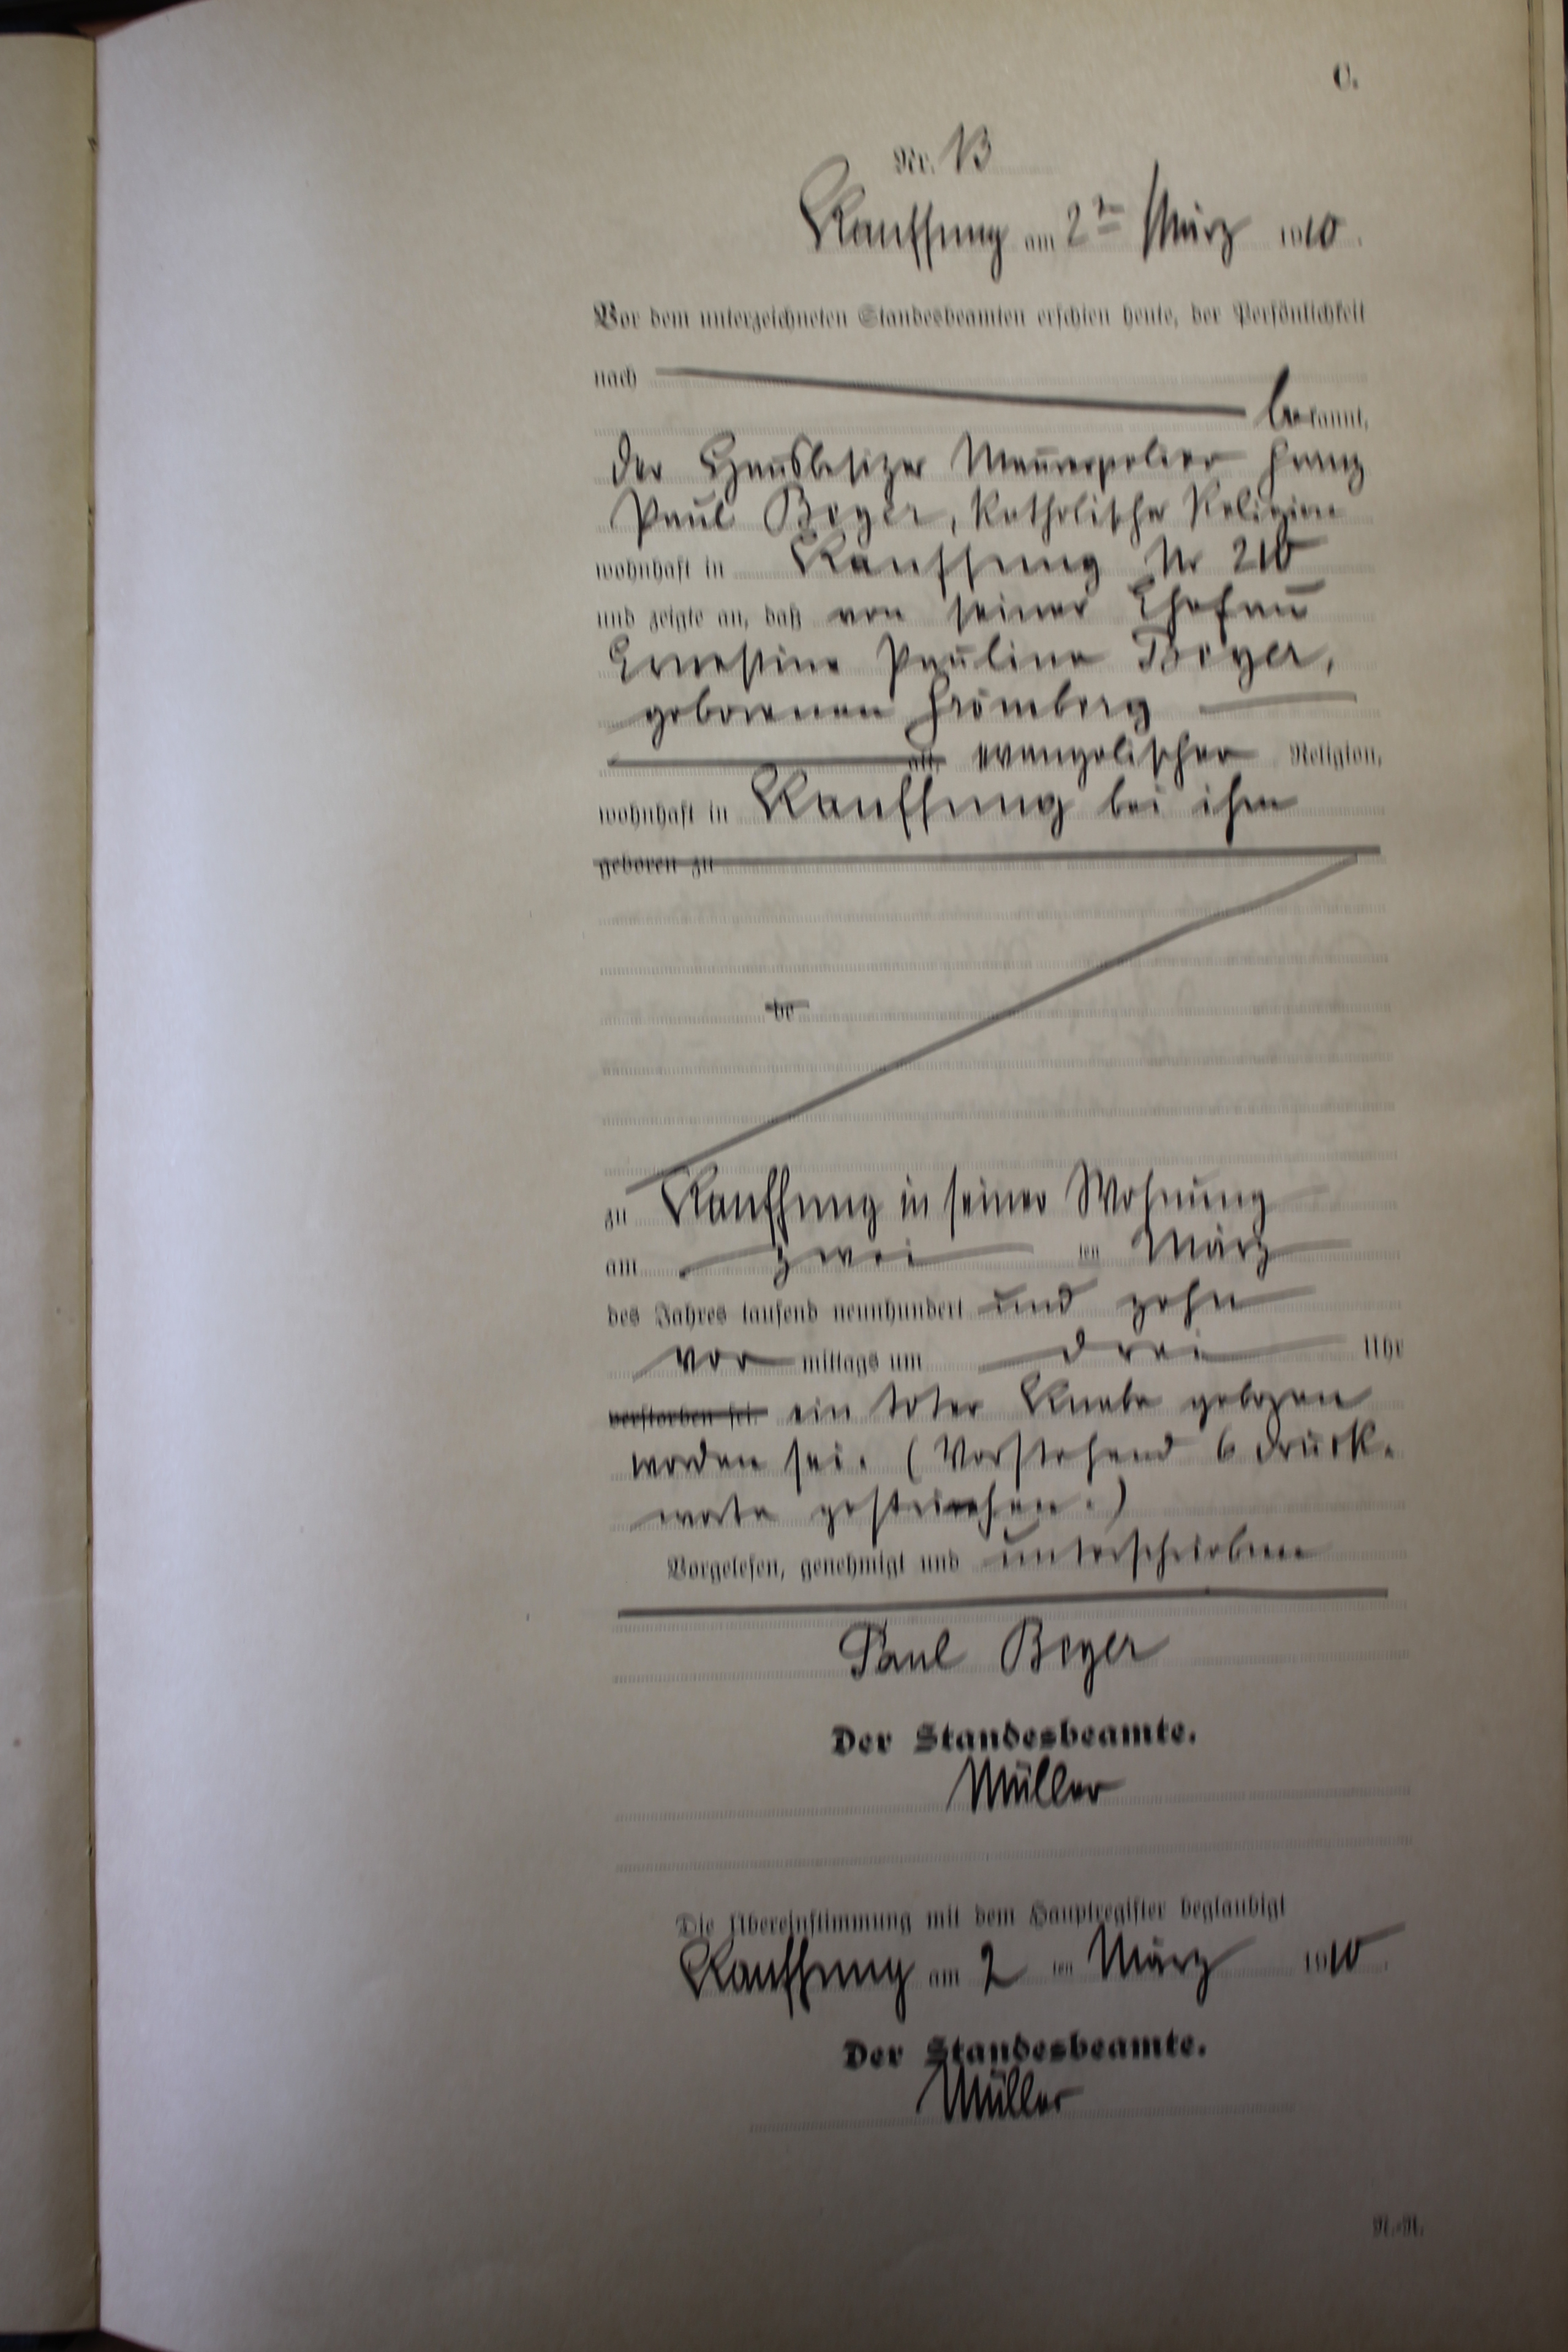 C.
Nr. 13
Kauffung am 2ten März 1910.
Vor dem unterzeichneten Standesbeamten erschien heute, der Persönlichkeit
nach
bekannt,
der Hausbesitzer Maurerpolier Franz
Paul Boyer, katholischer Religion
wohnhaft in Kauffung Nr 210
und zeigte an, daß von seiner Ehefrau
Ernestine Pauline Boyer,
geborenen Frömberg
alt, evangelischer Religion,
wohnhaft in Kauffung bei ihm
geboren zu
be
zu Kauffung in seiner Wohnung
am zwei ten März
des Jahres tausend neunhundert und zehn
vor mittags um drei Uhr
verstorben sei. ein toter Knabe geboren
worden sei. (Vorstehend 6 Druck-
worte gestrichen.)
Vorgelesen, genehmigt und unterschrieben
Paul Boyer
Der Standesbeamte.
Müller
Die Übereinstimmung mit dem Hauptregister beglaubigt
Kauffung am 2 ten März 1910.
Der Standesbeamte.
Müller